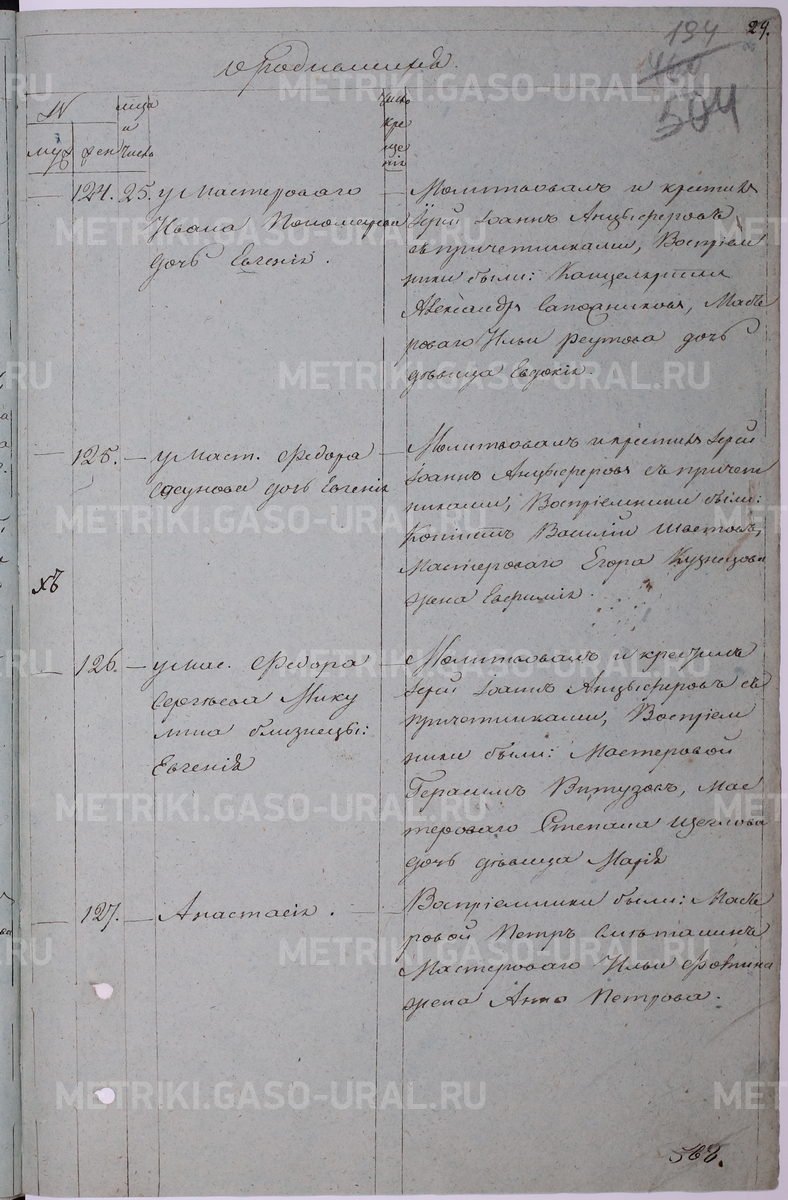 29.
194
504
о родившихся.
N
мца и число
число крещенія
муж жен
124. 25. у Мастероваго
Ивана Пономарева
дочь Евгенія.
Молитвовалъ и крестилъ
Іерей Іоаннъ Анцыферовъ
съ причетниками, Воспріем
ники были: Канцеляристъ
Александръ Сапожниковъ, Масте
роваго Ильи Реутова дочь
дѣвица Евдокія.
125. у Маст. Федора
дочь Евгенія
Молитвовалъ и крестилъ Іерей
Іоаннъ Анцыферовъ съ причет
никами, Воспріемники были:
Копіистъ Василій
Мастероваго Егора Кузнецова
жена Евфимія.
126. у Мас. Федора
Сергѣева Мику
лина близнецы:
Евгенія
Молитвовалъ и крестилъ
Іерей Іоаннъ Анцыферовъ съ
причетниками, Воспріем
ники были: Мастеровой
Герасимъ Мас
тероваго Степана Щеглова
дочь дѣвица Марія
127. Анастасія.
Воспріемники были: Масте
ровой Петръ Сметанинъ
Мастероваго Ильи
жена Анна Петрова.
METRIKI.GASO-URAL.RU